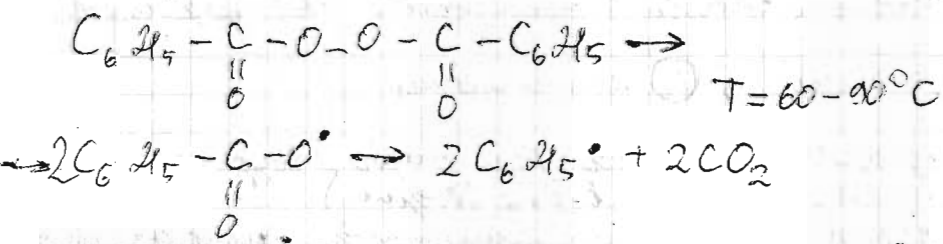 C₆H₅ – C – O – O – C – C₆H₅ →
‖ ‖
O O T = 60 – 90°C
→ 2C₆H₅ – C – O• → 2C₆H₅• + 2CO₂
‖
O